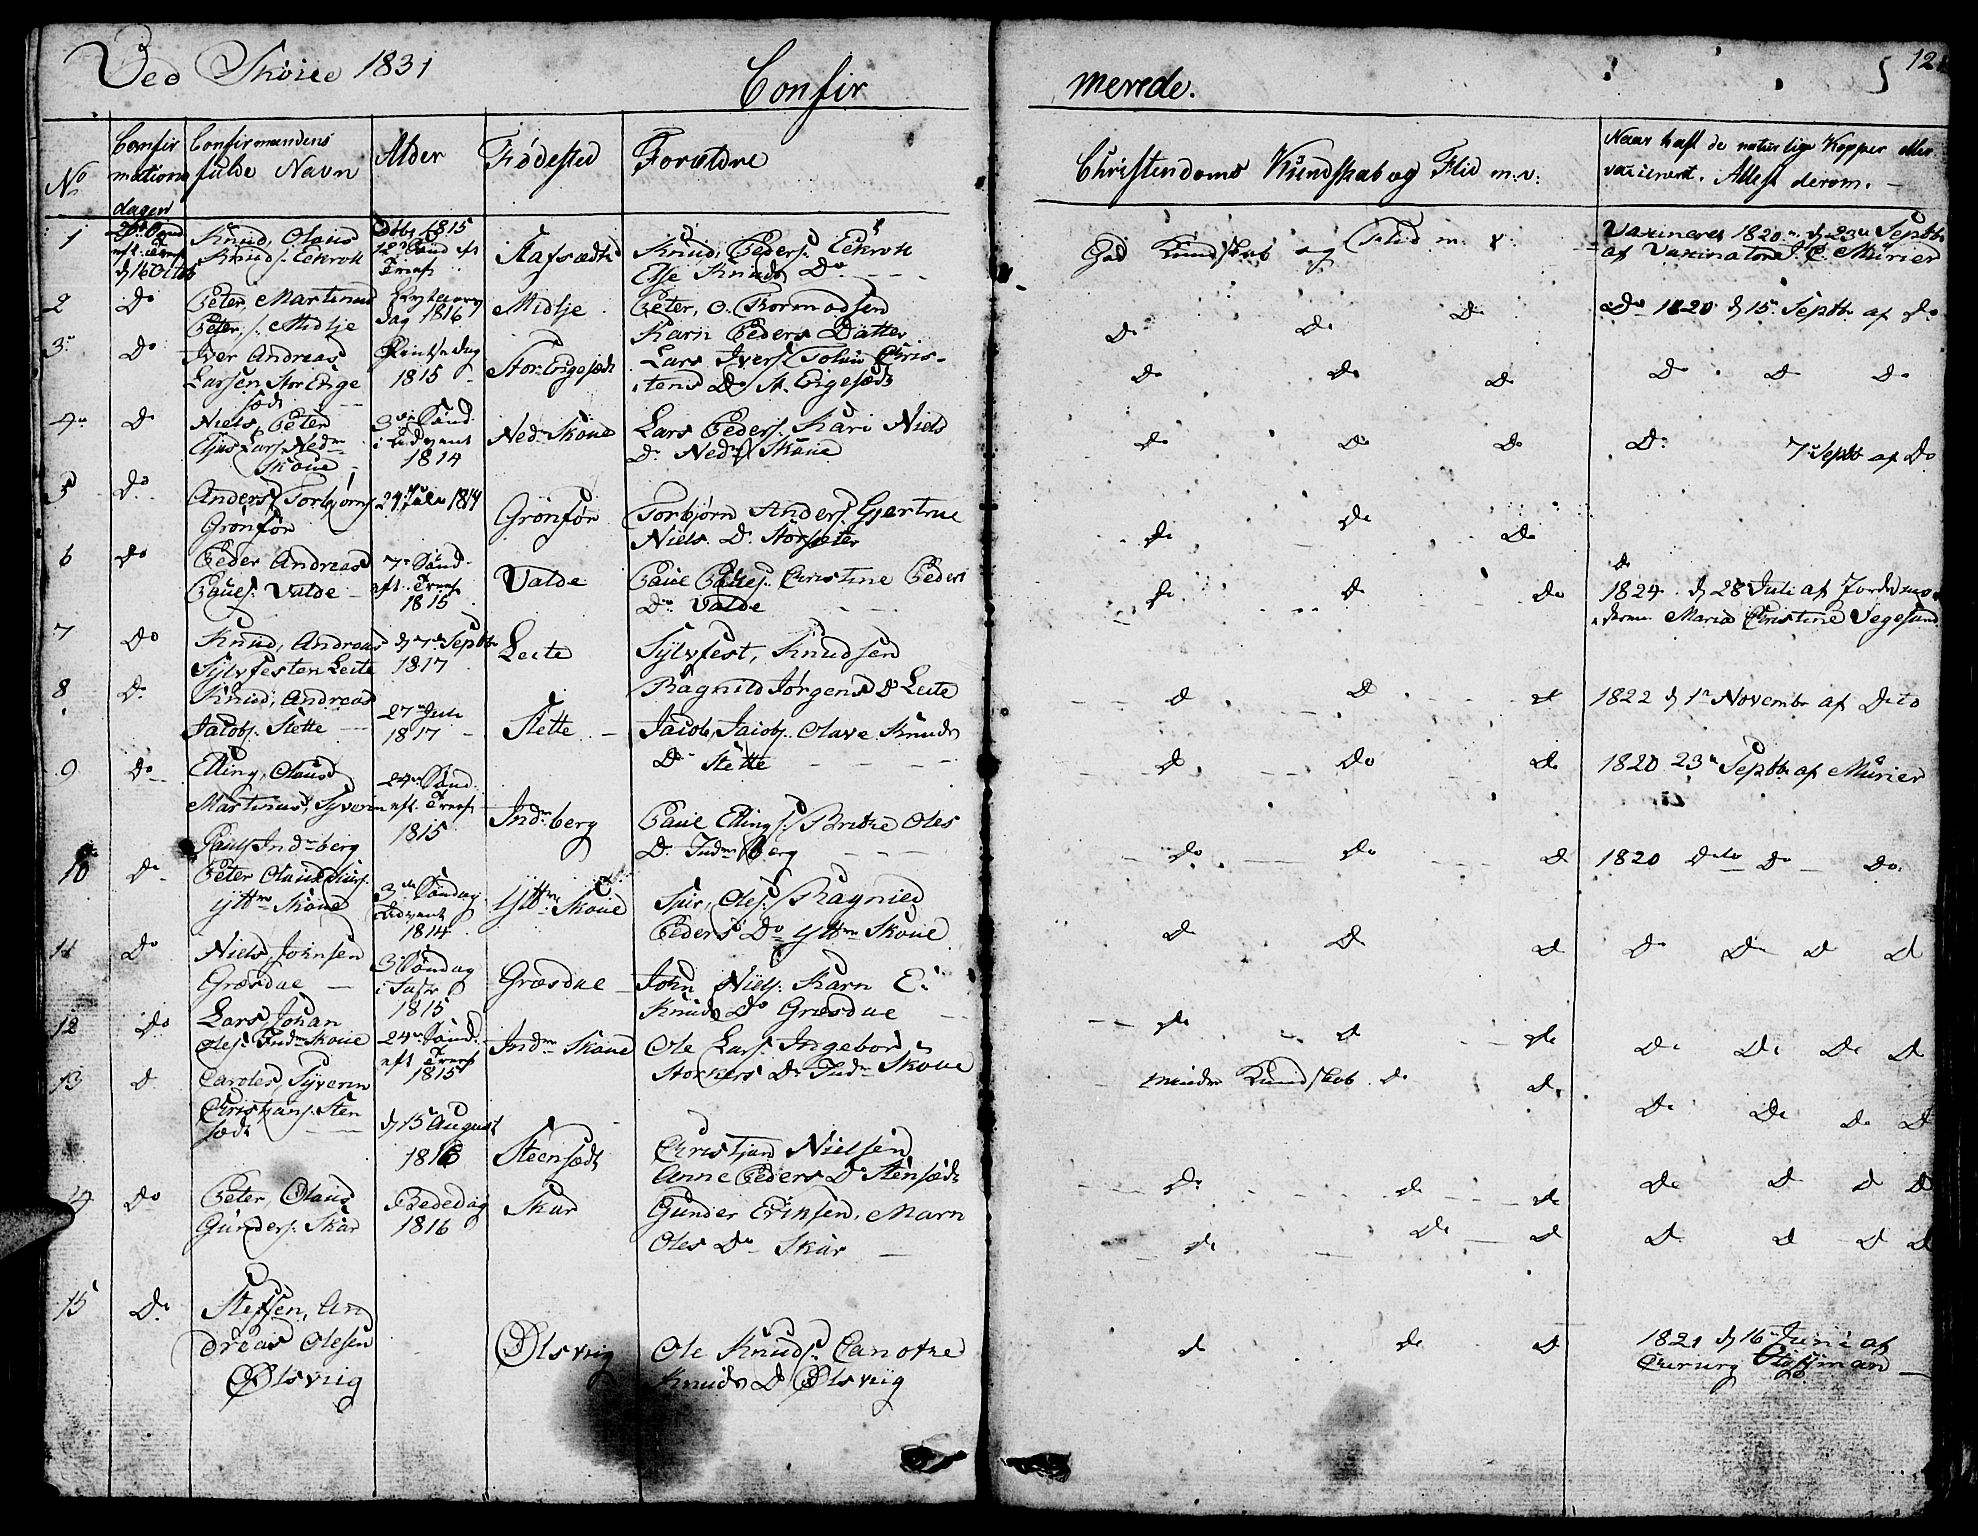 Ved Skoue 1831
Confir
merede.
12
No
Confir
mations
dagen
Confirmandens
fulde Navn
Alder
Fødested
Forældre
Christendoms Kundskab og Flid m. v.
Naar haft de naturlige Kopper eller
vaxineret. Attest derom.
1
d 16 Octob
Knud, Olaus
Knuds. Eekrok
Døbt 1815
12te Sønd eft
Trinit
Stafsædt
Knud, Peders. Eekrok
Else Knuds Do
God Kundskab og Flid m. v.
Vaxineret 1820 d 23de Septbr
af Vaxinatore J. C. Mürier
2
Do
Peter, Martinus
Peter, s. Midtje
Nytaars
dag 1816
Midtje
Peter, O. Tormodsen
Karn Peders Datter
Do
Do
Do
Do 1820 d 15 Septbr af Do
3
Do
Iver Andreas
Larsen Stor Enge
sædt
Pintsedag
1815
Stor Engesædt
Lars Ivers. Chris-
tens D. St. Engesædt
Do
Do
Do
Do
Do
Do
4
Do
Niels, Peter
Lars. Nedre
Skoue
3die Sønd.
i Advent
1814
Nedr Skoue
Lars Peders. Kari Niels
D. Nedr Skoue
Do
Do
Do
Do
7 Septbr af Do
5
Do
Anders Torbjørns
Grønfør
24 Jule 1814
Grønfør
Torbjørn Anders. Gjertrue
Niels D. Storsæter
Do
Do
Do
6
Do
Peder Andreas
Pauls. Valde
7de Sønd.
eft. Trinit
1815
Valde
Paul Pauls. Christine Peders
D. Valde
Do
Do
Do
Do
1824 d 28 Juli af Jordemo-
deren Maria Christine Segesund
7
Do
Knud, Andreas
Sylvfesten Leite
d 7de Septbr
1817
Leite
Sylvfest, Knudsen
Ragnild Jørgens D Leite
Do
Do
Do
1822 d 1te Novembr af Dito
8
Do
Knud, Andreas
Jacobs. Slette
27de Juli
1817
Slette
Jacob, Jacobs. Olave Knuds
D. Slette
Do
Do
Do
1820 23de Septbr af Mürier
9
Do
Elling, Olaus
Martinus, Syverin
Pauls Indreberg
24de Sønd.
eft. Trinit
1815
Indrberg
Paul Ellings. Brithe Oles
D. Indreberg
Do
Do
Do
1820 dito Do Do
10
Do
Peter Olaus
Yttre Skoue
3die Søndag
i Advent
1814
Yttre Skoue
Oles. Ragnild
Peders Do Yttre Skoue
Do
Do
Do
Do
Do
Do
Do
11
Do
Niels, Johnsen
Græsdal
3die Søndag
i Faste
1815
Græsdal
John Niels. Karn E.
Knuds Do Græsdal
Do
Do
Do
Do
Do
Do
Do
12
Do
Lars Johan
Oles. Indre Skoue
24de Sønd.
eft Trinit
1815
Indre Skoue
Ole Lars. Ingebor
Storkers D. Indre Skoue
mindre Kundskab Do
Do
Do
Do
Do
Do
13
Do
Caroles Syverin
Christians. Sten
sædt
d 15 August
1816
Steensædt
Christjan Nielsen
Anne Peders D Stensædt
Do
Do
Do
Do
Do
Do
Do
14
Do
Peter, Olaus
Gunders. Skar
Bededag
1816
Skar
Gunder Erinsen, Marn
Oles Do Skar
Do
Do
Do
Do
Do
Do
Do
15
Do
Steffen, An
dreas Olesen
Ølsviig
Ølsviig
Ole Knuds. Canothe
Knuds D Ølsviig
Do
Do
Do
1821 d 16 Juni af
Cirurg